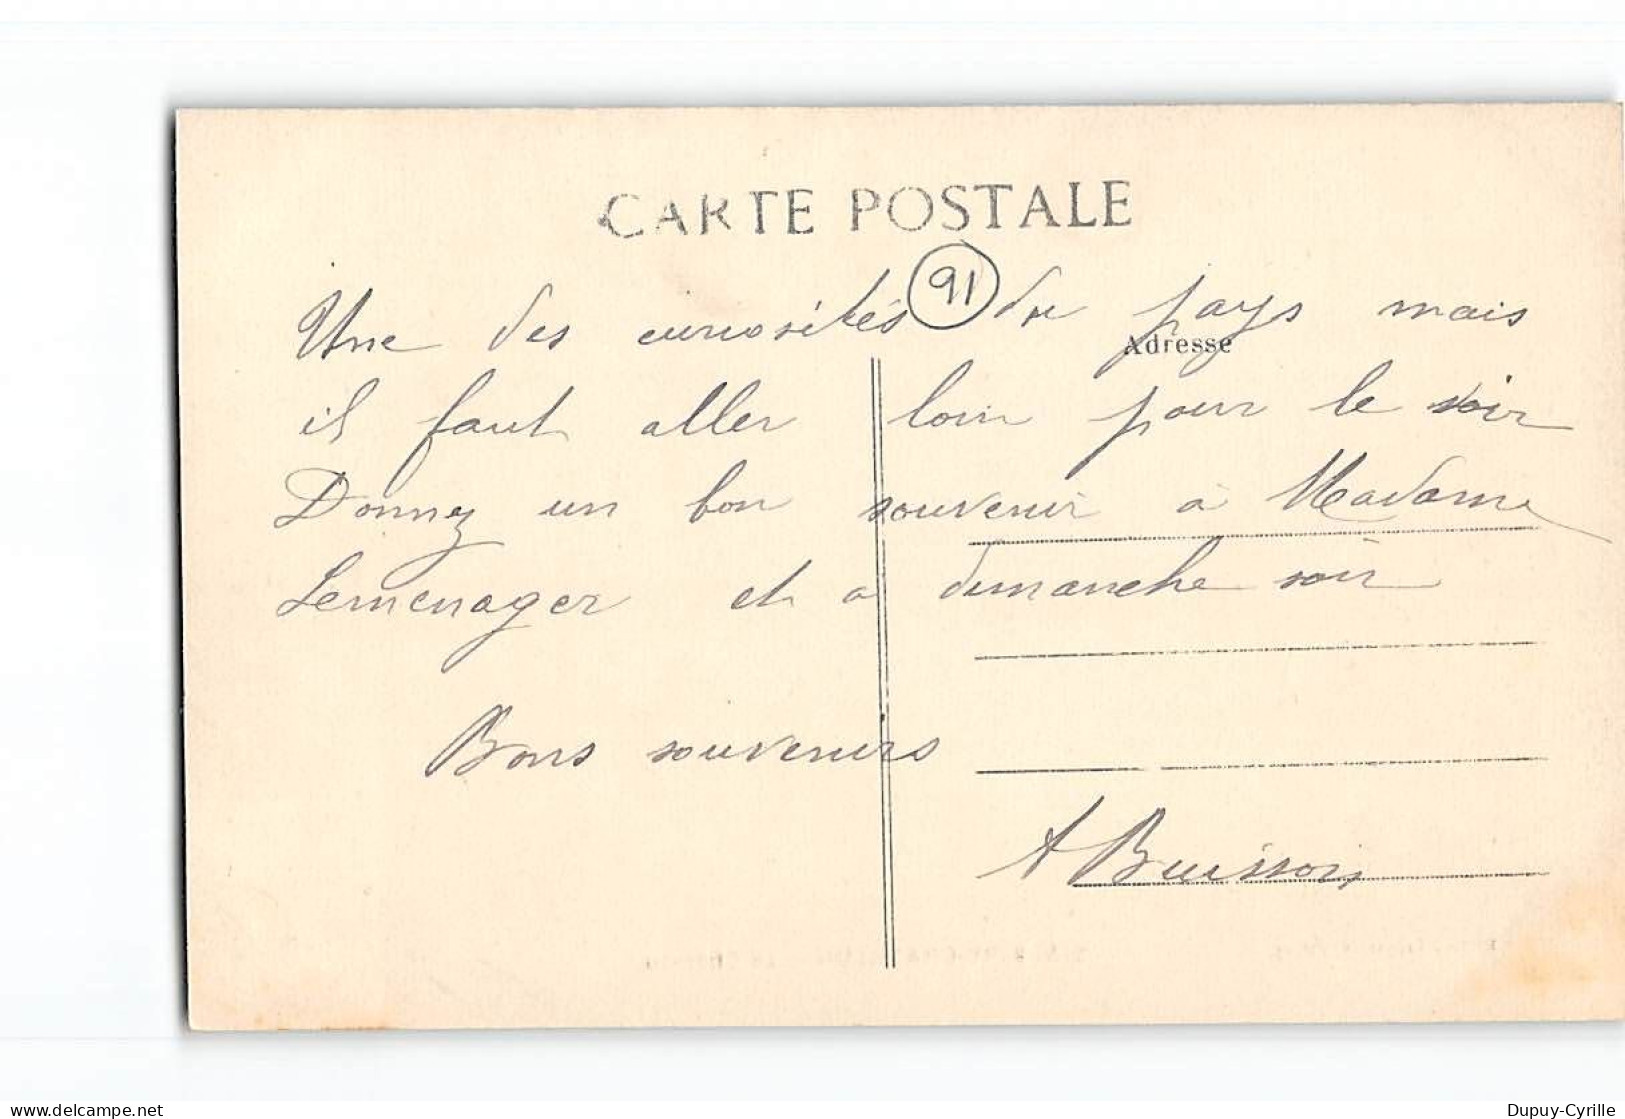 CARTE POSTALE
91
Une des curiosités du pays mais
Adresse
il faut aller loin pour le voir
Donnez un bon souvenir à Madame
Lemenager et a dimanche soir
Bons souvenirs
A Buisson
delcampe.net
Dupuy-Cyrille